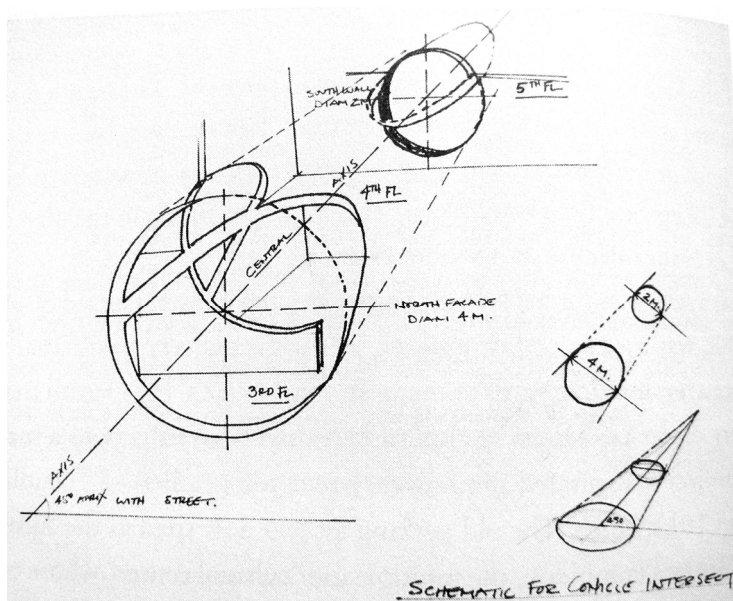 SOUTH WALL
DIAM 2M.
5TH FL
AXIS
4TH FL
CENTRAL
NORTH FACADE
DIAM 4M.
2M.
4M.
3RD FL
AXIS
45° APRX WITH STREET.
45°
SCHEMATIC FOR CONICLE INTERSECT